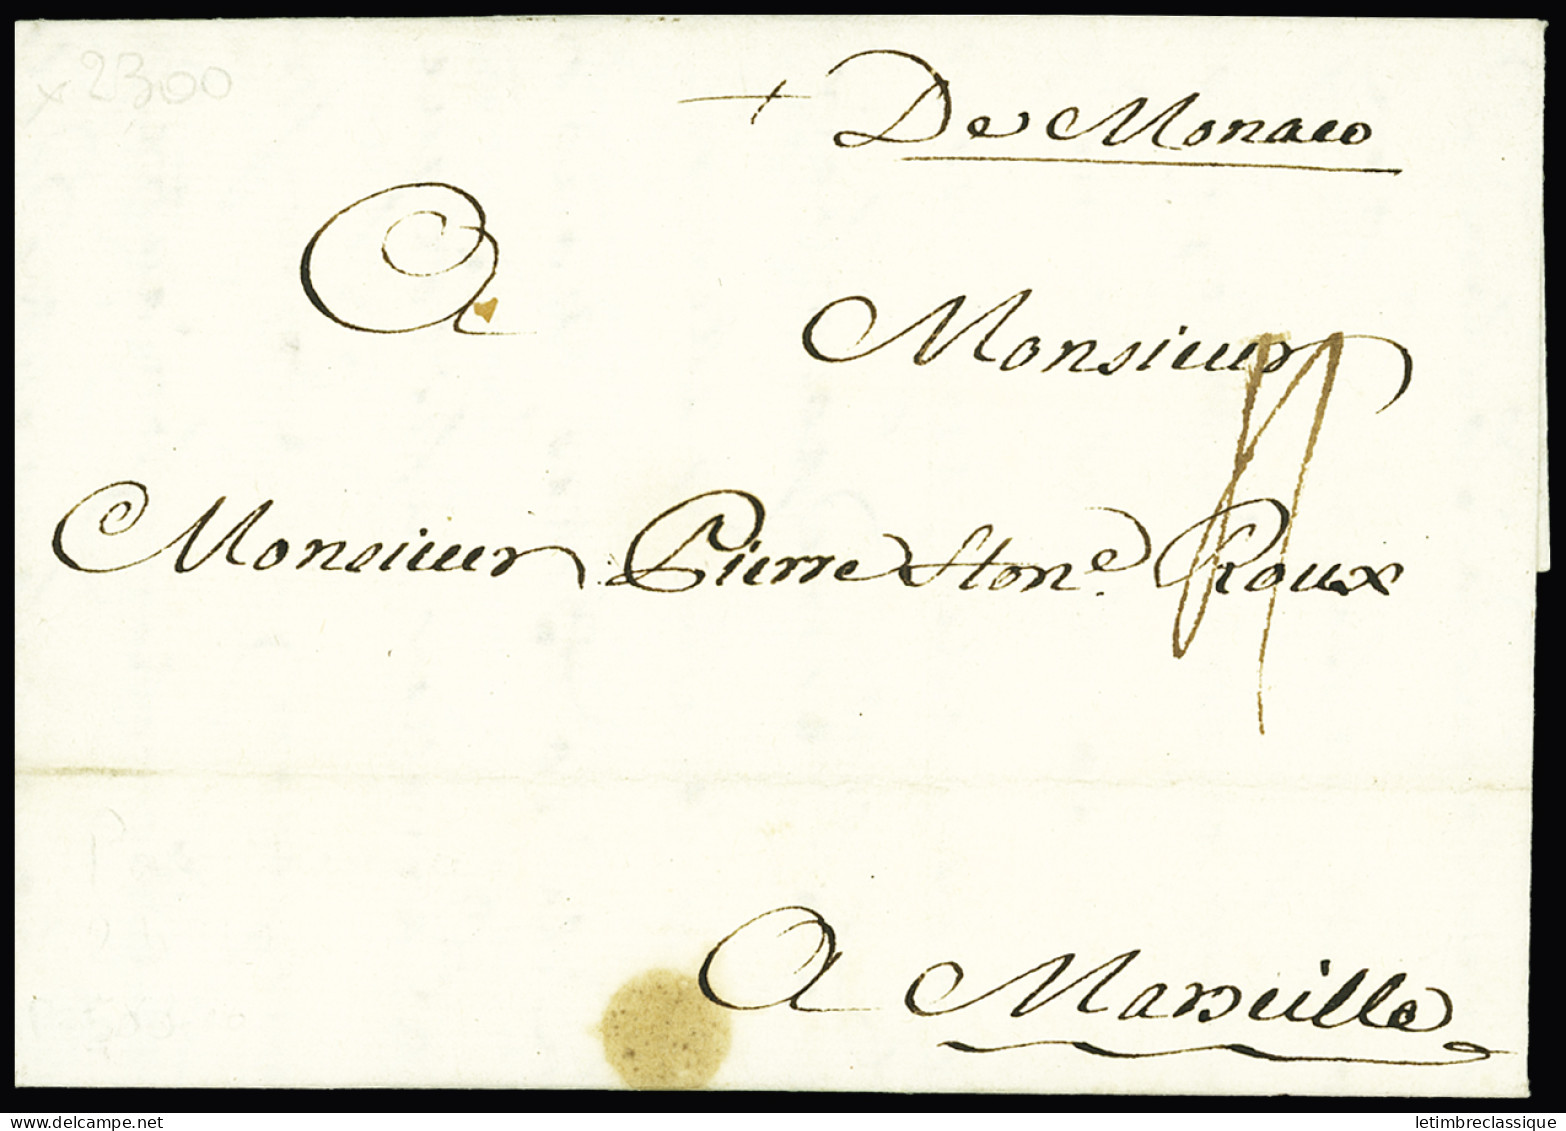 x 2300
+ De Monaco
A
Monsieur
Monsieur Pierre hon.e Roux
A Marseille
www.delcampe.net
letimbreclassique